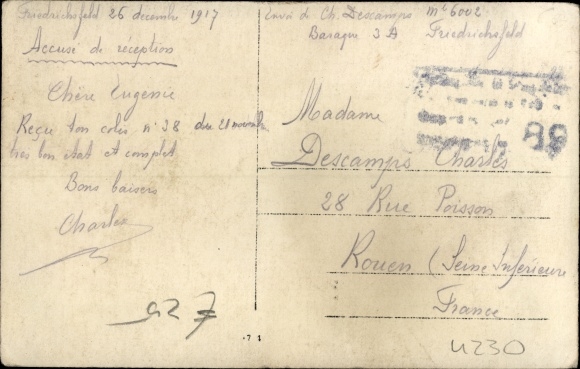 Friedrichsfeld 26 decembre 1917
Accusé de réception
Chère Eugenie
Reçu ton colis n° 38 du 21 novembre
tres bon etat et complet
Bons baisers
Charles
927
Envoi de Ch. Descamps Mle 6002
Baraque 3A Friedrichsfeld
Madame
Descamps Charles
28 Rue Poisson
Rouen (Seine Inferieure
France
4230